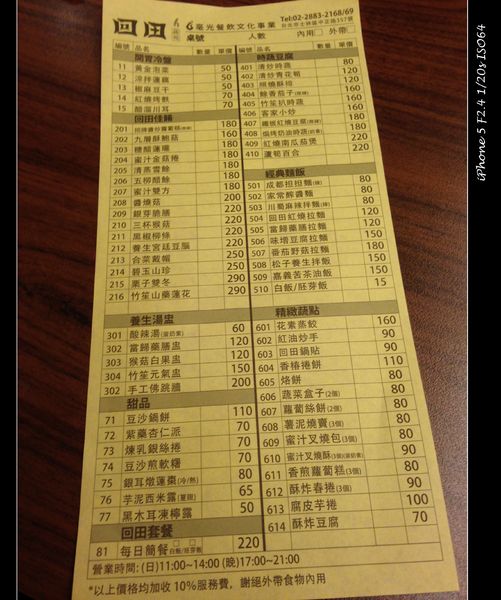 回田
毫光餐飲文化事業
Tel:02-2883-2168/69
台北市士林區中正路357號
桌號 人數 內用 外帶
編號 品名 數量 單價
開胃冷盤
11 黃金泡菜 50
12 涼拌蓮藕 50
13 椒麻豆干 50
14 紅燒烤麩 70
15 醋溜川耳 70
回田佳餚
201 180
202 九層酥鮑菇 180
203 糖醋蓮環 180
204 蜜汁金菇捲 180
205 清蒸雪餘 180
206 五柳醋餘 180
207 蜜汁雙方 180
208 醬燒菇 200
209 銀芽脆膳 220
210 三杯猴菇 220
211 黑椒柳條 220
212 養生宮廷豆腦 250
213 合菜戴帽 250
214 碧玉山珍 250
215 栗子雙冬 290
216 竹笙山藥蓮花 290
養生湯盅
301 酸辣湯(蛋奶素) 60
302 當歸藥膳盅 120
303 猴菇白果盅 120
304 竹笙元氣盅 150
302 手工佛跳牆 200
甜品
71 豆沙鍋餅 110
72 紫藥杏仁派 70
73 煉乳銀絲捲 70
74 豆沙煎軟糬 70
75 銀耳燉蓮棗(冷/熱) 80
76 芋泥西米露(夏限) 65
77 黑木耳凍檸露 50
回田套餐
81 每日簡餐 白飯/胚芽飯 220
編號 品名 數量 單價
時蔬豆腐
401 清炒時蔬 80
402 清炒青花筍 120
403 焗燒酥柿 120
404 餘香茄子(微辣) 120
405 竹笙扒時蔬 160
406 客家小炒 160
407 鐵板紅燒豆腐(微辣) 160
408 焗烤奶油時蔬(奶素) 160
409 紅燒南瓜茄煲 180
410 蘆筍百合 220
經典麵飯
501 成都担担麵(辣) 80
502 家常炸醬麵 80
503 川蜀麻辣拌麵(辣) 80
504 回田紅燒拉麵 120
505 當歸藥膳拉麵 120
506 味增豆腐拉麵 150
507 番茄野菇拉麵 180
508 松子養生拌飯 150
509 嘉義苦茶油飯 150
510 白飯/胚芽飯 15
精緻蔬點
601 花素蒸餃 160
602 紅油炒手 90
603 回田鍋貼 90
604 香椿捲餅 110
605 烙餅 80
606 蔬菜盒子(2個) 80
607 蘿蔔絲餅(2個) 80
608 薯泥燒賣(3個) 80
609 蜜汁叉燒包(3個) 80
610 蜜汁叉燒酥(3個)(蛋奶素) 90
611 香煎蘿蔔糕(3個) 80
612 酥炸春捲(3個) 90
613 腐皮芋捲 100
614 酥炸豆腐 70
營業時間: (日)11:00~14:00 (晚)17:00~21:00
*以上價格均加收10%服務費，謝絕外帶食物內用
iPhone 5 F2.4 1/20s ISO64